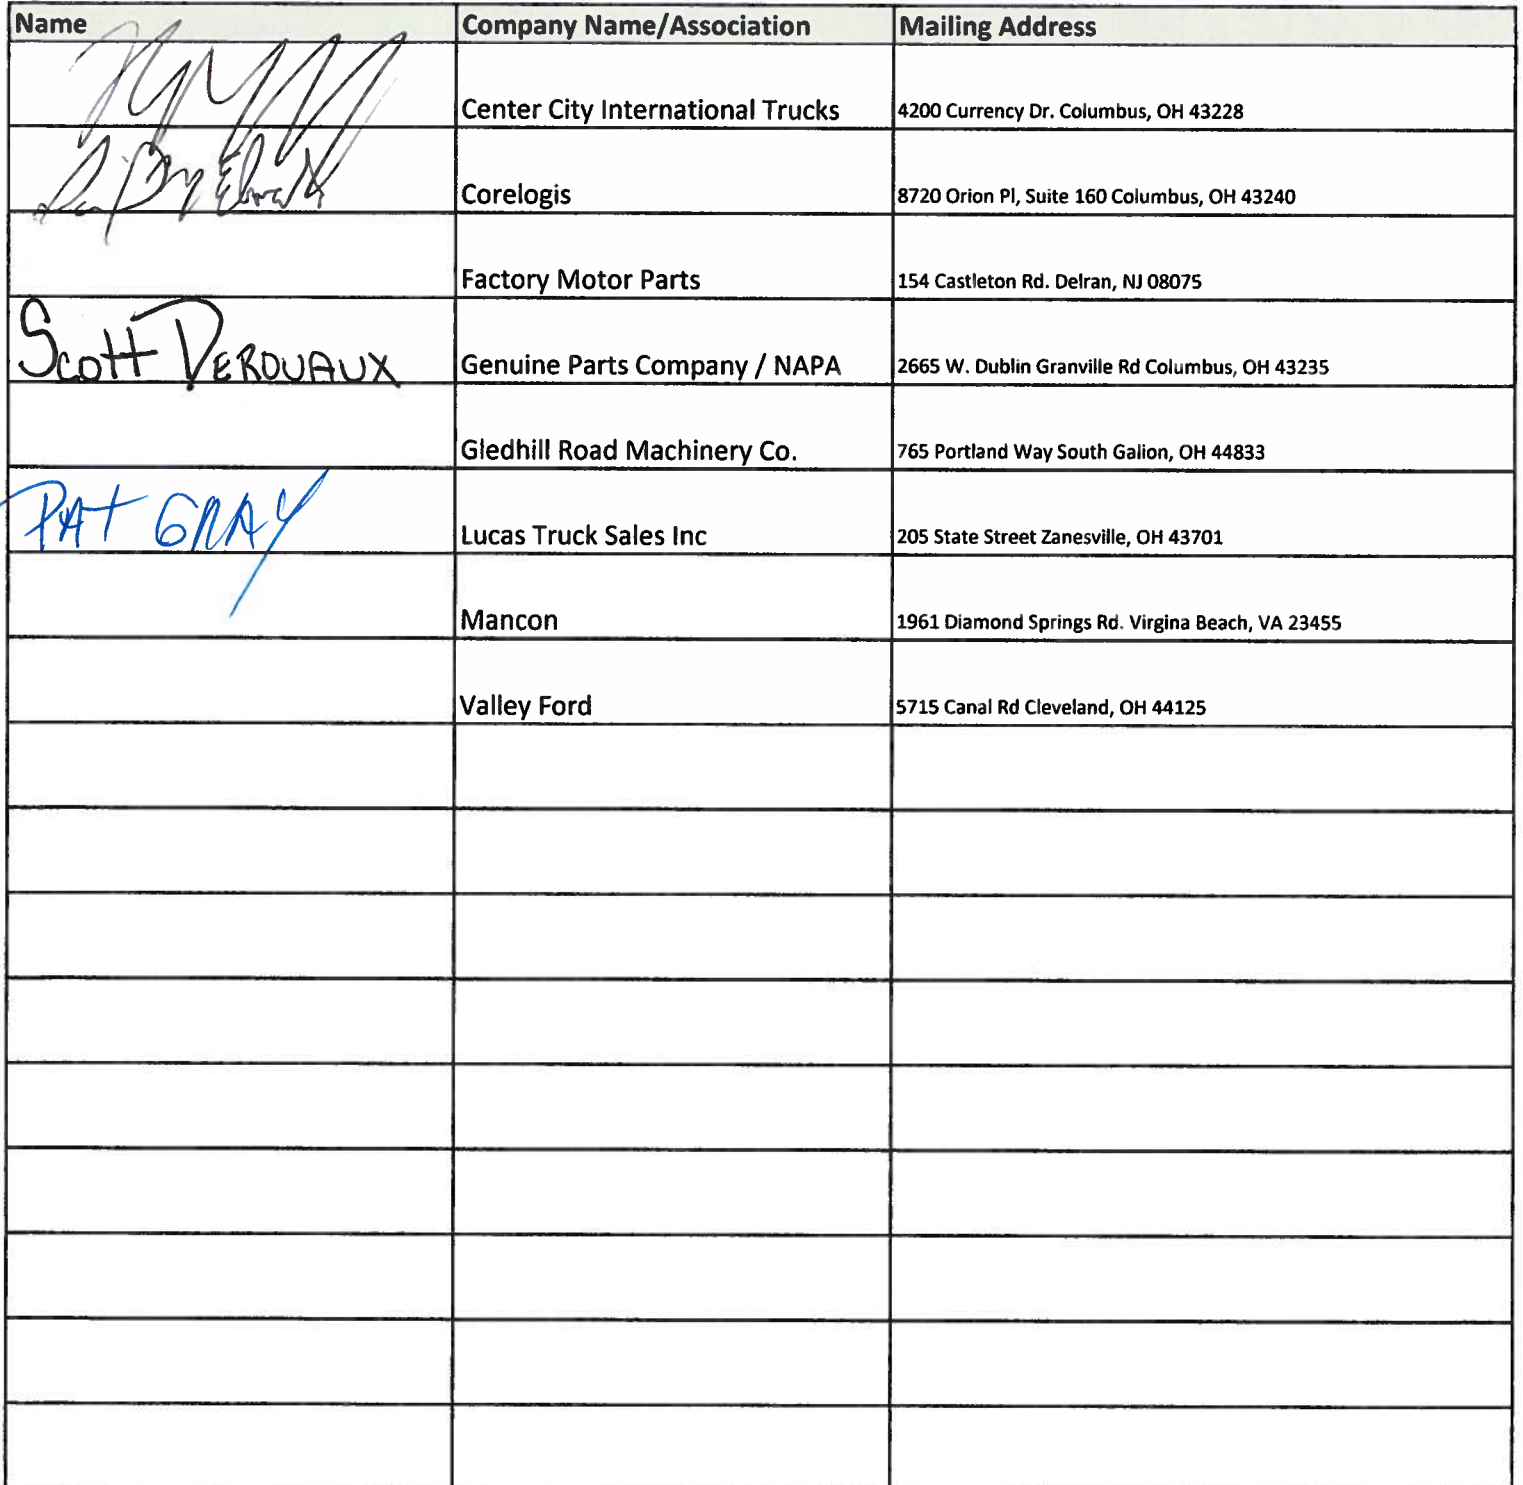 Name Company Name/Association Mailing Address
Center City International Trucks 4200 Currency Dr. Columbus, OH 43228
Corelogis 8720 Orion Pl, Suite 160 Columbus, OH 43240
Factory Motor Parts 154 Castleton Rd. Delran, NJ 08075
Scott DEROUAUX Genuine Parts Company / NAPA 2665 W. Dublin Granville Rd Columbus, OH 43235
Gledhill Road Machinery Co. 765 Portland Way South Galion, OH 44833
PAT GRAY Lucas Truck Sales Inc 205 State Street Zanesville, OH 43701
Mancon 1961 Diamond Springs Rd. Virgina Beach, VA 23455
Valley Ford 5715 Canal Rd Cleveland, OH 44125